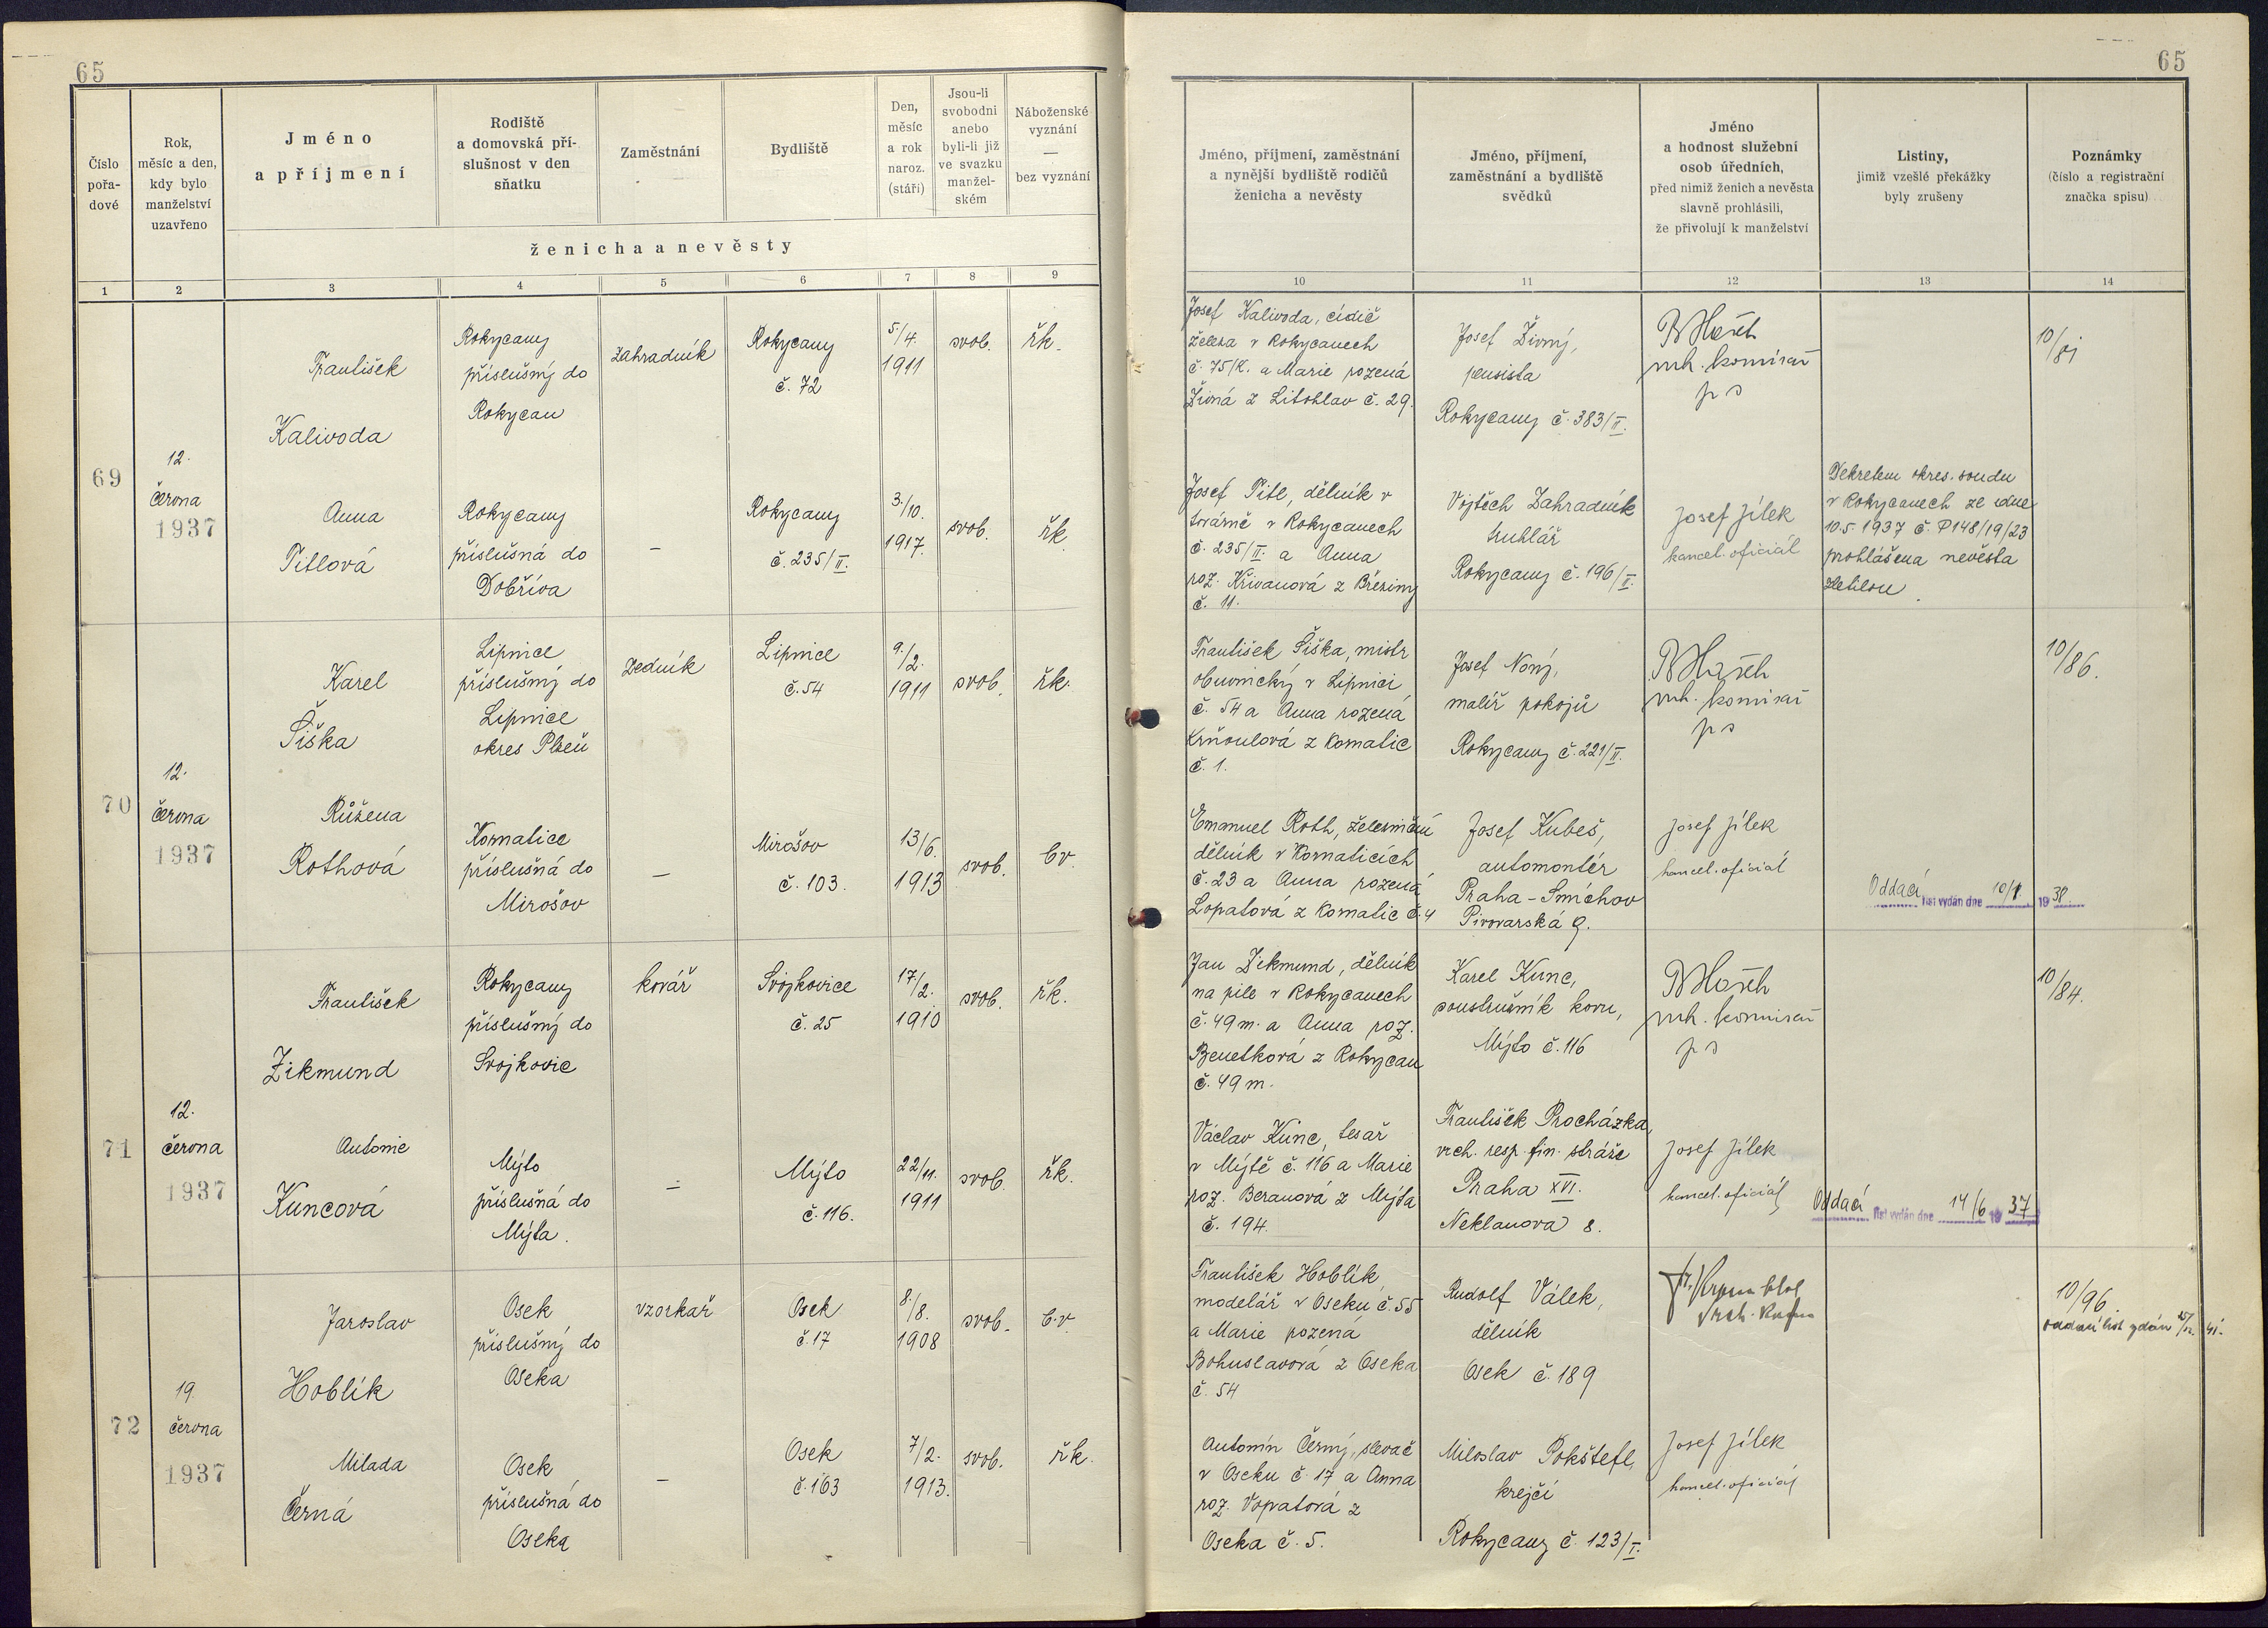 65
65
Číslo
pořa-
dové
Rok,
měsíc a den,
kdy bylo
manželství
uzavřeno
Jméno
a příjmení
Rodiště
a domovská pří-
slušnost v den
sňatku
Zaměstnání
Bydliště
Den,
měsíc
a rok
naroz.
(stáří)
Jsou-li
svobodni
anebo
byli-li již
ve svazku
manžel-
ském
Náboženské
vyznání
—
bez vyznání
ženicha a nevěsty
Jméno, příjmení, zaměstnání
a nynější bydliště rodičů
ženicha a nevěsty
Jméno, příjmení,
zaměstnání a bydliště
svědků
Jméno
a hodnost služební
osob úředních,
před nimiž ženich a nevěsta
slavně prohlásili,
že přivolují k manželství
Listiny,
jimiž vzešlé překážky
byly zrušeny
Poznámky
(číslo a registrační
značka spisu)
1 2 3 4 5 6 7 8 9 10 11 12 13 14
69
12.
června
1937
František
Kalivoda
Rokycany
příslušný do
Rokycan
zahradník
Rokycany
č. 72
5./4.
1911
svob.
řk.
Josef Kalivoda, cídič
železa v Rokycanech
č. 75/K. a Marie rozená
Živná z Litohlav č. 29.
Josef Živný,
pensista
Rokycany č. 383/II.
vrch. komisař
ps
10/
Anna
Pitlová
Rokycany
příslušná do
Dobříva
—
Rokycany
č. 235/II.
3./10.
1917.
svob.
řk.
Josef Pitl, dělník v
továrně v Rokycanech
č. 235/II. a Anna
roz. Křivanová z Březiny
č. 11.
Vojtěch Zahradník
truhlář
Rokycany č. 196/II.
Josef Jílek
kancel. oficiál
Dekretem okres. soudu
v Rokycanech ze dne
10.5.1937 č. P148/19/23
prohlášena nevěsta
zletilou.
70
12.
června
1937
Karel
Šiška
Lipnice
příslušný do
Lipnice
okres Plzeň
zedník
Lipnice
č. 54
9./2.
1911
svob.
řk.
František Šiška, mistr
obuvnický v Lipnici
č. 54 a Anna rozená
Krňoulová z Kornatic
č. 1.
Josef Nový,
malíř pokojů
Rokycany č. 221/II.
vrch. komisař
ps
10/86.
Růžena
Rothová
Kornatice
příslušná do
Mirošov
—
Mirošov
č. 103.
13/6.
1913
svob.
bv.
Emanuel Roth, železniční
dělník v Kornaticích
č. 23 a Anna rozená
Lopatová z Kornatic č. 4
Josef Kubeš,
automontér
Praha-Smíchov
Pivovarská 9.
Josef Jílek
kancel. oficiál
Oddací list vydán dne 10/8. 1938.
71
12.
června
1937
František
Zikmund
Rokycany
příslušný do
Svojkovic
kovář
Svojkovice
č. 25
17/2.
1910
svob.
řk.
Jan Zikmund, dělník
na pile v Rokycanech
č. 49 m. a Anna roz.
Benetková z Rokycan
č. 49 m.
Karel Kunc,
soustružník kovu,
Mýto č. 116
vrch. komisař
ps
10/84.
Antonie
Kuncová
Mýto
příslušná do
Mýta.
—
Mýto
č. 116.
22/11.
1911
svob.
řk.
Václav Kunc, tesař
v Mýtě č. 116 a Marie
roz. Beranová z Mýta
č. 194.
František Procházka,
vrch. resp. fin. stráže
Praha XVI.
Neklanova 8.
Josef Jílek
kancel. oficiál
Oddací list vydán dne 14/6 1937
72
19.
června
1937
Jaroslav
Hoblík
Osek
příslušný do
Oseka
vzorkař
Osek
č. 17
8./8.
1908
svob.
b.v.
František Hoblík,
modelář v Oseku č. 55
a Marie rozená
Bohuslavová z Oseka
č. 54
Rudolf Válek,
dělník
Osek č. 189
10/96.
oddací list vydán
Milada
Černá
Osek
příslušná do
Oseka
—
Osek
č. 163
7/2.
1913.
svob.
řk.
Antonín Černý, slevač
v Oseku č. 17 a Anna
roz. Vopatová z
Oseka č. 5.
Miloslav Pokštefl,
krejčí
Rokycany č. 123/I.
Josef Jílek
kancel. oficiál